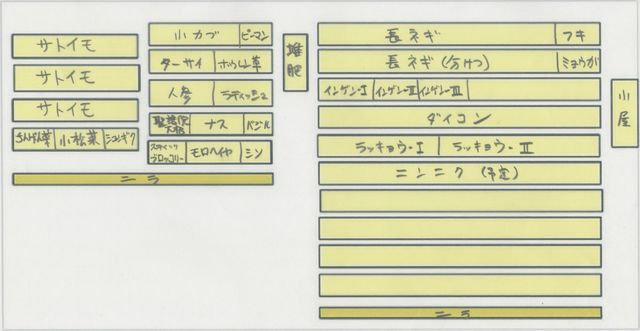 サトイモ
サトイモ
サトイモ
小松菜 シュンギク
小カブ ピーマン
ターサイ ホウレン草
人参 ラディッシュ
聖護院大根 ナス バジル
スティックブロッコリー モロヘイヤ シソ
ニラ
堆肥
長ネギ フキ
長ネギ (分けつ) ミョウガ
インゲン-I インゲン-II インゲン-III
ダイコン
ラッキョウ-I ラッキョウ-II
ニンニク (予定)
ニラ
小屋